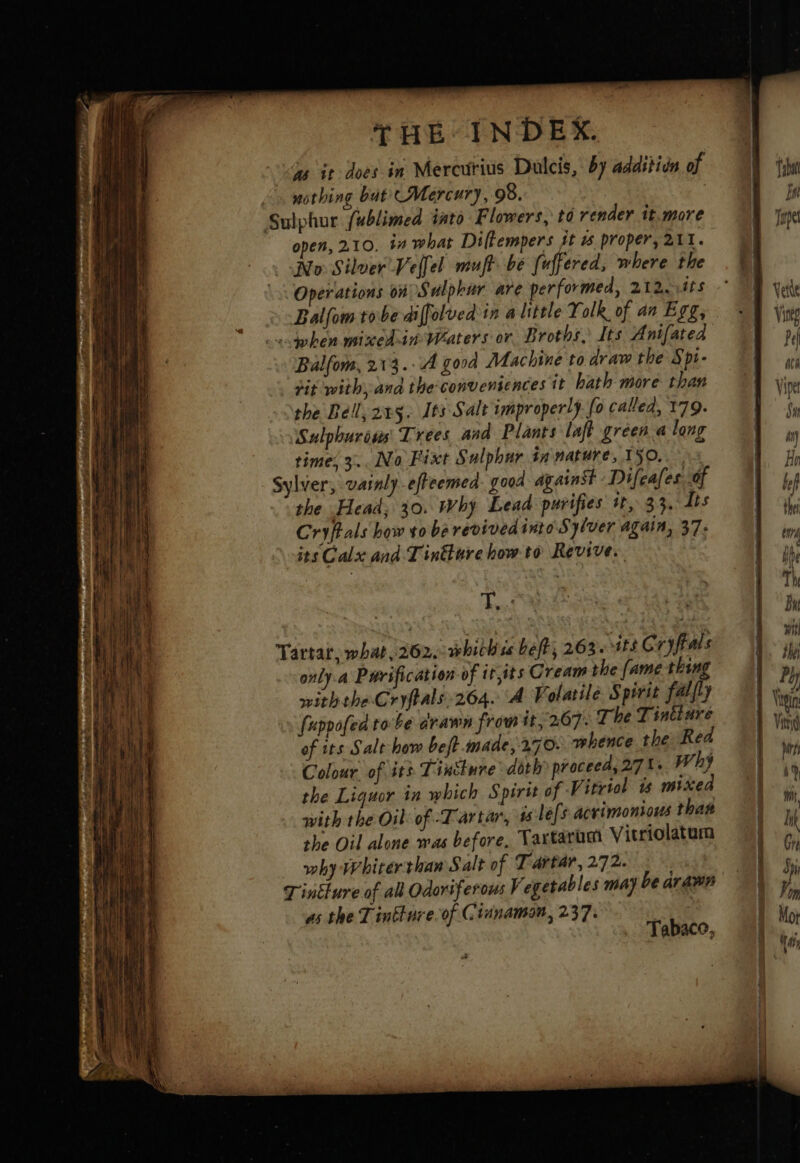 THE INDEX.
as it does in Mercurius Dulcis, by addition of
nothing but Mercury, 98.
Sulphur ſublimed into Flowers, to render it more
open, 210. in what Diſtempers it is proper, 211.
No Silver Veſſel muſt be ſuffered, where the
Operations on Sulphur are performed, 212. its
Balſom to be diſſolved in a little Yolk of an Egg,
when mixed in Waters or Broths, Its Aniſated
Balſom, 213. A good Machine to draw the Spi-
rit with, and the conveniences it hath more than
the Bell, 215. Its Salt improperly ſo called, 179.
Sulphurous Trees and Plants laſt green a long
time, 3. No Fixt Sulphur in nature, 150.
Sylver, vainly eſteemed good against Diſeaſes of
the Head, 30. Why Lead purifies it, 33. Its
Cryſtals how to be revived into Sylver again, 37.
its Calx and Tincture how to Revive.
T.
Tartar, what, 262. which is beſt, 263. its Cryſtals
only a Purification of it, its Cream the ſame thing
with the Cryſtals 264. A Volatile Spirit falſly
ſuppoſed to be drawn from it, 267. The Tincture
of its Salt how beſt made, 270. whence the Red
Colour of its Tincture doth proceed, 271. Why
the Liquor in which Spirit of Vitriol is mixed
with the Oil of Tartar, is leſs acrimonious than
the Oil alone was before, Tartarum Vitriolatum
why Whiter than Salt of Tartar, 272.
Tincture of all Odoriferous Vegetables may be drawn
as the Tincture of Cinnamon, 237.
Tabaco,